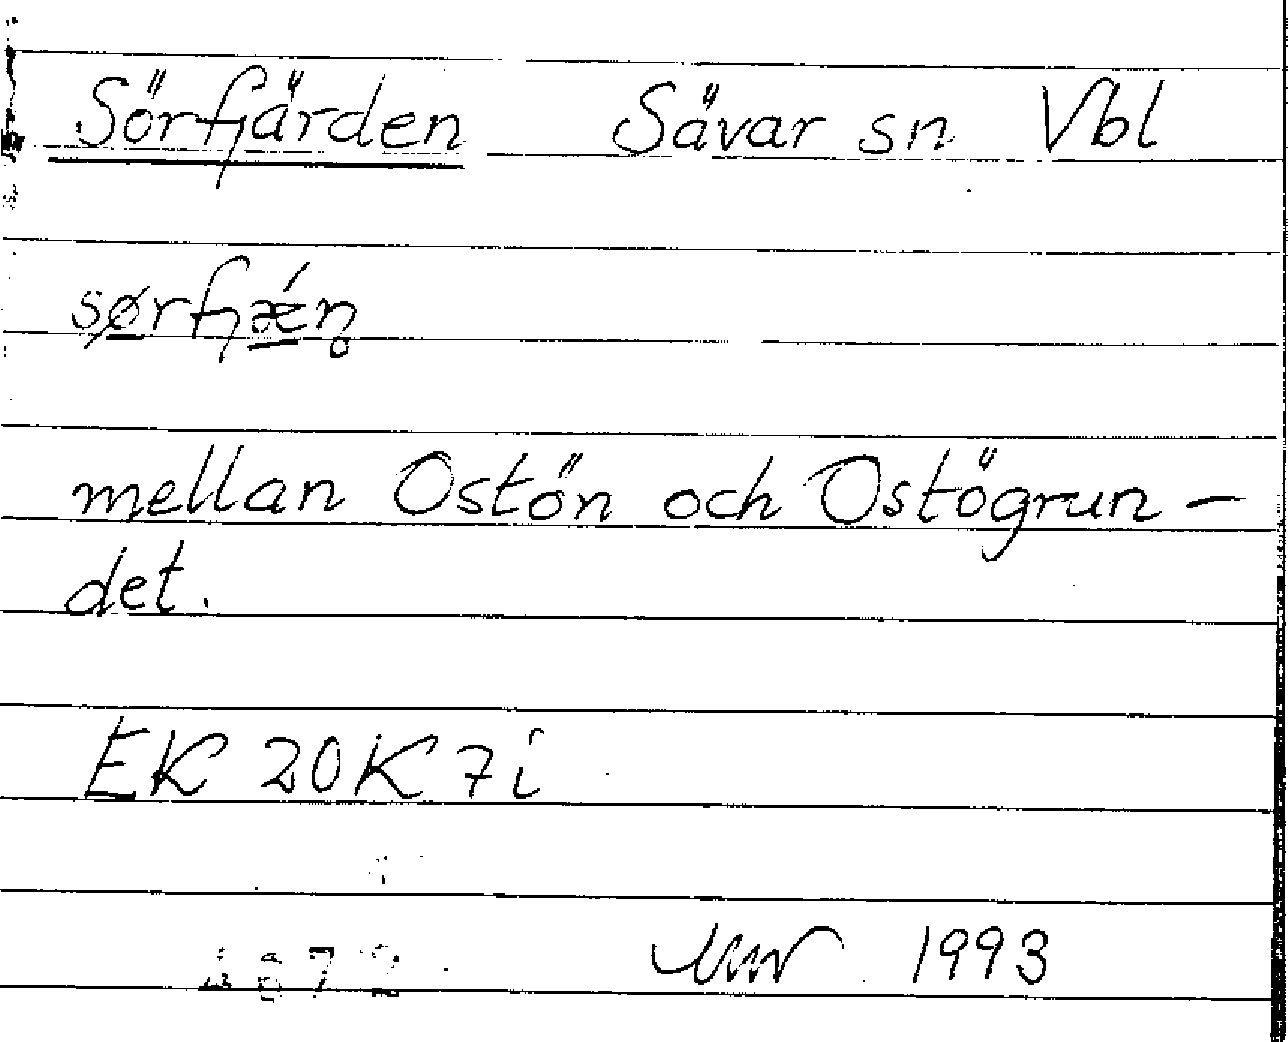 Sörfjärden Sävar sn Vbl
sørfjǽn̥
mellan Ostön och Ostögrun-
det.
EK 20K 7i
1993